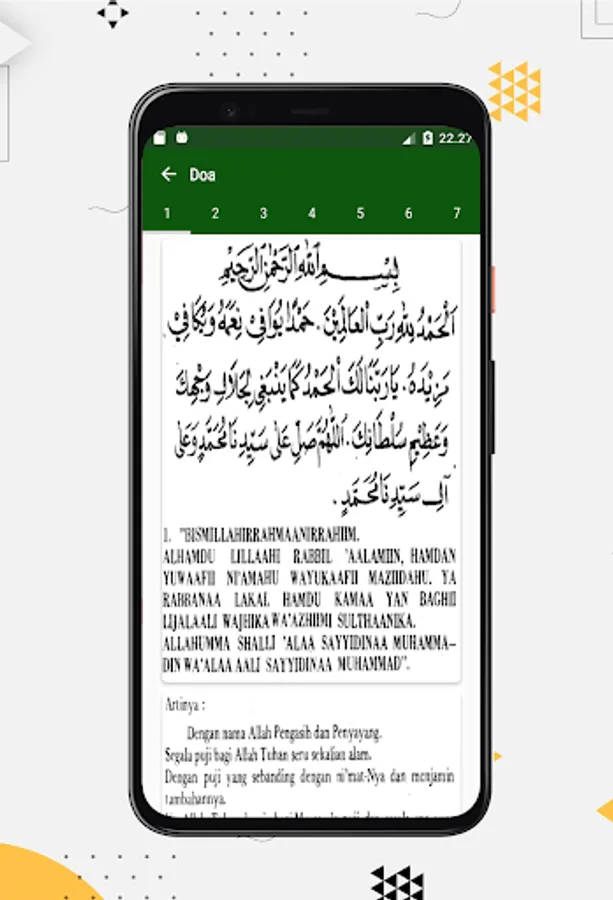 22.27
Doa
1 2 3 4 5 6 7
بِسْمِ اللهِ الرَّحْمٰنِ الرَّحِيْمِ
اَلْحَمْدُ لِلّٰهِ رَبِّ الْعَالَمِيْنَ. حَمْدًا يُوَافِيْ نِعَمَهُ وَيُكَافِيْ
مَزِيْدَهُ. يَارَبَّنَا لَكَ الْحَمْدُ كَمَا يَنْبَغِيْ لِجَلَالِ وَجْهِكَ
وَعَظِيْمِ سُلْطَانِكَ. اَللّٰهُمَّ صَلِّ عَلٰى سَيِّدِنَا مُحَمَّدٍ وَعَلٰى
اٰلِ سَيِّدِنَا مُحَمَّدٍ.
1. "BISMILLAHIRRAHMAANIRRAHIIM.
ALHAMDU LILLAAHI RABBIL 'AALAMIIN, HAMDAN
YUWAAFII NI'AMAHU WAYUKAAFII MAZIIDAHU. YA
RABBANAA LAKAL HAMDU KAMAA YAN BAGHII
LIJALAALI WAJHIKA WA'AZHIIMI SULTHAANIKA.
ALLAHUMMA SHALLI 'ALAA SAYYIDINAA MUHAMMA–
DIN WA'ALAA AALI SAYYIDINAA MUHAMMAD".
Artinya :
Dengan nama Allah Pengasih dan Penyayang.
Segala puji bagi Allah Tuhan seru sekalian alam.
Dengan puji yang sebanding dengan ni'mat-Nya dan menjamin
tambahannya.